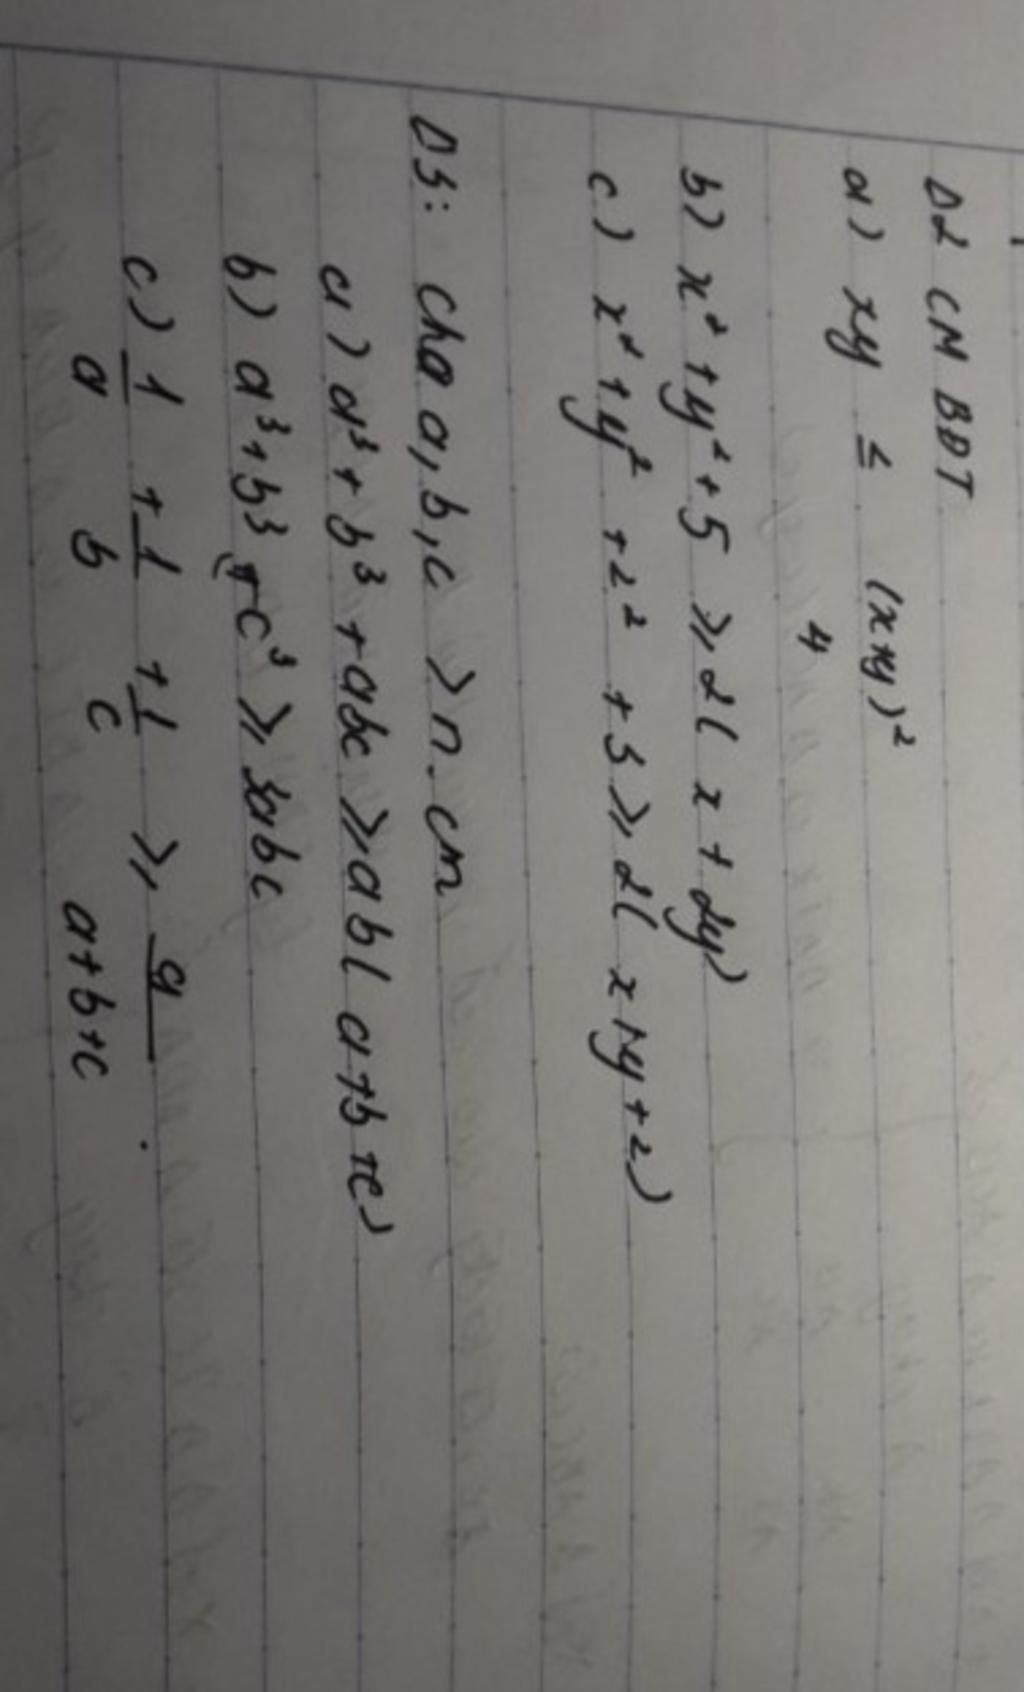 B2 CM BĐT
a) xy ≤ (x+y)²
4
b) x² + y² + 5 ≥ 2( x + 2y)
c) x² + y² + z² + 3 ≥ 2( x+y+z)
B3: Cho a, b, c > 0. cm
a) a³ + b³ + abc ≥ ab( a+b+c)
b) a³ + b³ + c³ ≥ 3abc
c) 1/a + 1/b + 1/c ≥ 9/a+b+c .